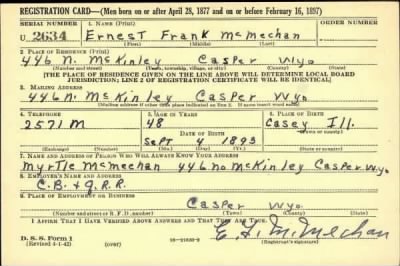 REGISTRATION CARD—(Men born on or after April 28, 1877 and on or before February 16, 1897)
SERIAL NUMBER 1. NAME (Print) ORDER NUMBER
U 2634 Ernest Frank McMechan
(First) (Middle) (Last)
2. PLACE OF RESIDENCE (Print)
446 N. McKinley Casper Wyo
(Number and street) (Town, township, village, or city) (County) (State)
[THE PLACE OF RESIDENCE GIVEN ON THE LINE ABOVE WILL DETERMINE LOCAL BOARD
JURISDICTION; LINE 2 OF REGISTRATION CERTIFICATE WILL BE IDENTICAL]
3. MAILING ADDRESS
446 N. McKinley Casper Wyo
[Mailing address if other than place indicated on line 2. If same insert word same]
4. TELEPHONE 5. AGE IN YEARS 6. PLACE OF BIRTH
2571 M 48 Casey Ill.
DATE OF BIRTH (Town or county)
Sept 4 1893
(Exchange) (Number) (Mo.) (Day) (Yr.) (State or country)
7. NAME AND ADDRESS OF PERSON WHO WILL ALWAYS KNOW YOUR ADDRESS
Myrtle McMechan 446 No McKinley Casper Wyo
8. EMPLOYER'S NAME AND ADDRESS
C.B. & Q.R.R.
9. PLACE OF EMPLOYMENT OR BUSINESS
Casper Wyo
(Number and street or R. F. D. number) (Town) (County) (State)
I AFFIRM THAT I HAVE VERIFIED ABOVE ANSWERS AND THAT THEY ARE TRUE.
D. S. S. Form 1
(Revised 4-1-42) (over) 16—21630-2 (Registrant's signature)